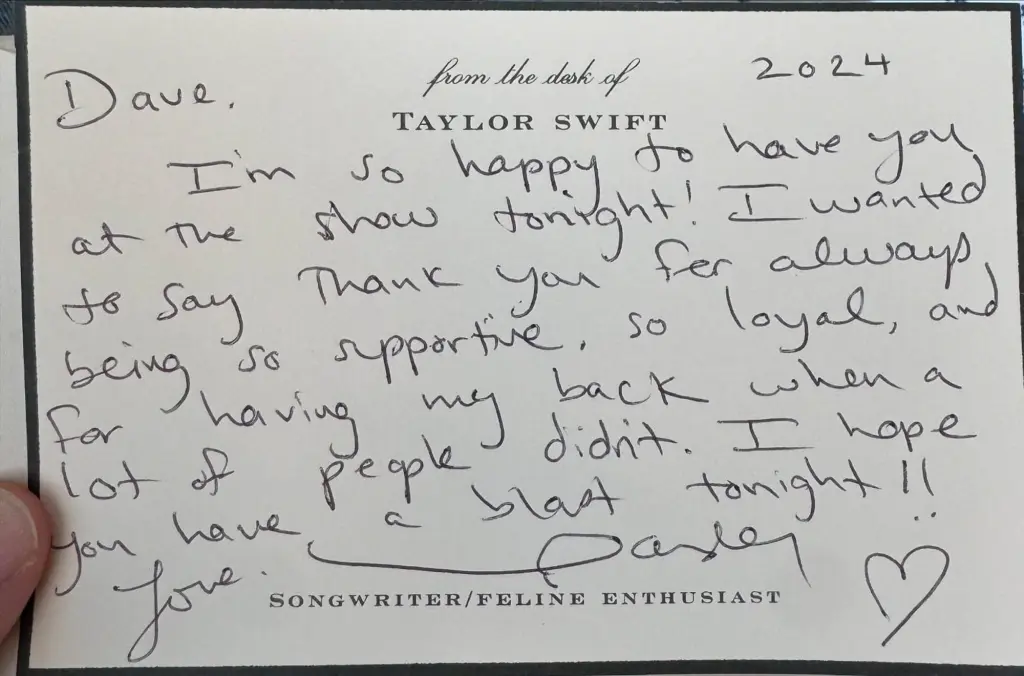 from the desk of
TAYLOR SWIFT
2024
Dave,
I'm so happy to have you
at the show tonight! I wanted
to say Thank you for always
being so supportive, so loyal, and
for having my back when a
lot of people didn't. I hope
you have a blast tonight!!
Love,
SONGWRITER/FELINE ENTHUSIAST